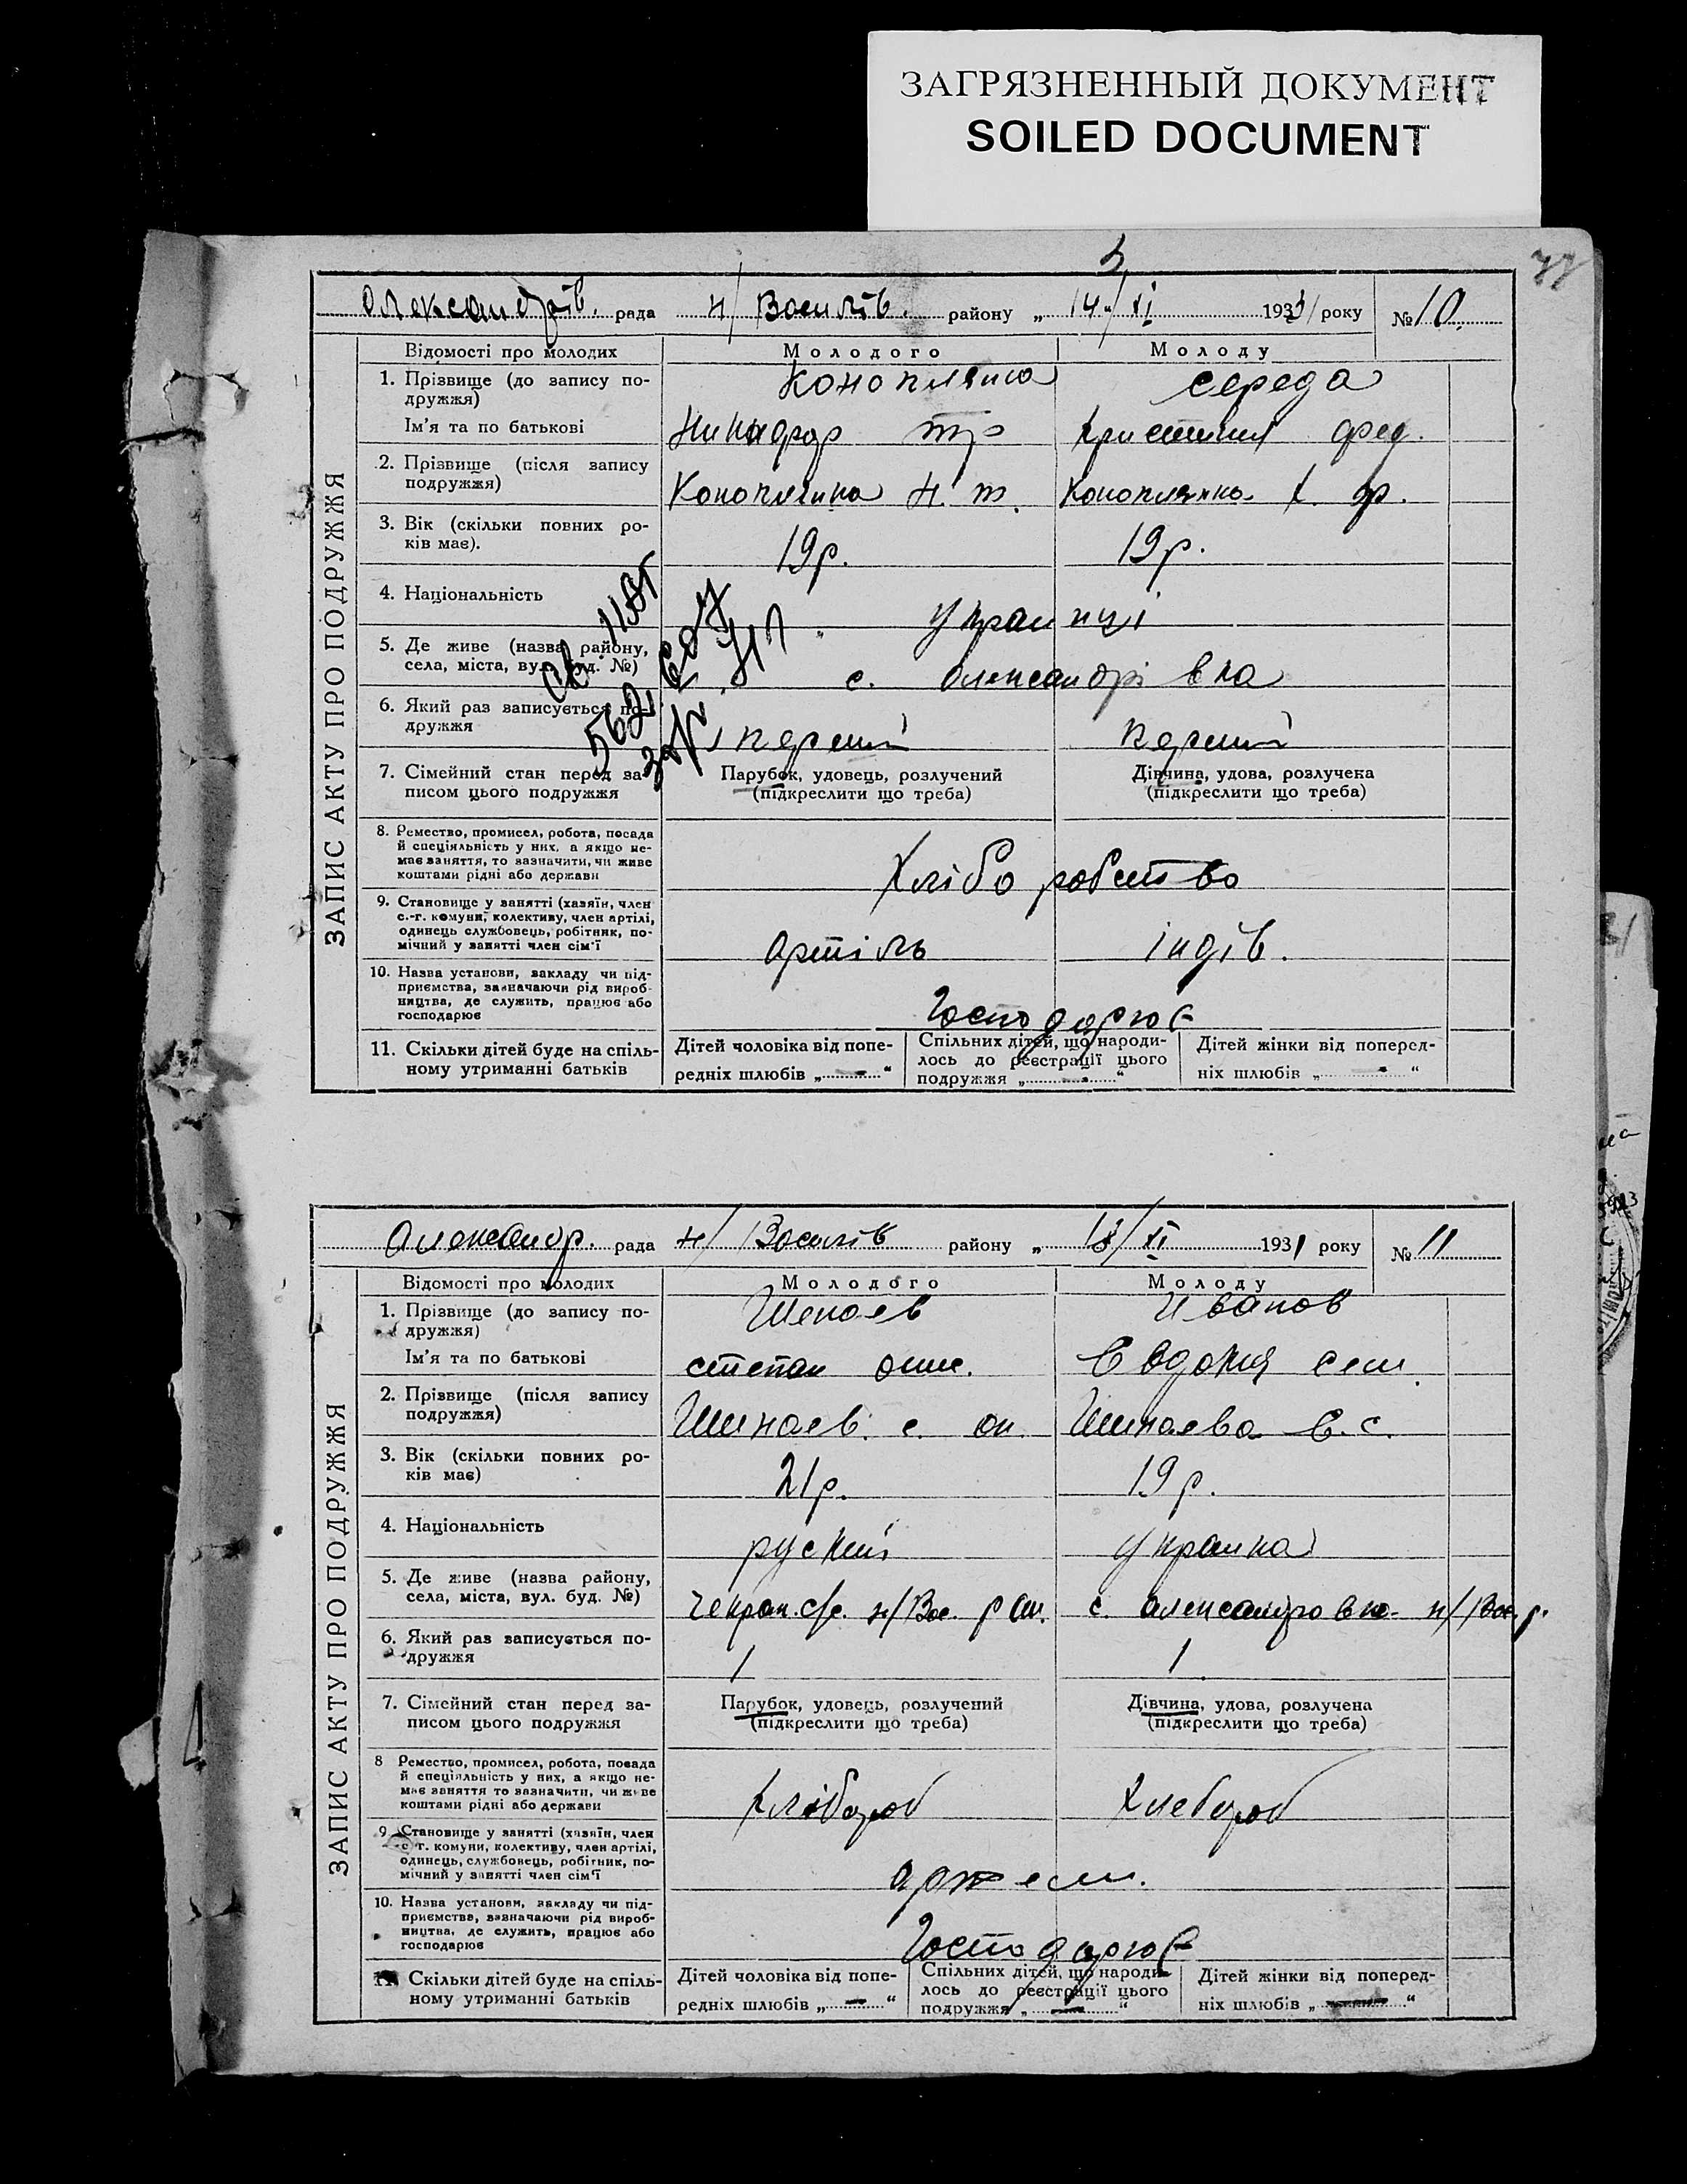 ЗАГРЯЗНЕННЫЙ ДОКУМЕНТ
SOILED DOCUMENT
Олександрів. рада н/Василів. району „14„/XI 1931 року № 10.
ЗАПИС АКТУ ПРО ПОДРУЖЖЯ
Відомості про молодих Молодого Молоду
1. Прізвище (до запису по-
дружжя) Конопляна середа
Ім'я та по батькові Никифор тр Христиния фед.
2. Прізвище (після запису
подружжя) Коноплянка Н. т. Коноплянко Х. ф.
3. Вік (скільки повних ро-
ків має). 19р. 19р.
4. Національність українці
5. Де живе (назва району,
села, міста, вул. буд. №) с. Олександрівка
6. Який раз записується по-
дружжя перший перший
7. Сімейний стан перед за-
писом цього подружжя
Парубок, удовець, розлучений
(підкреслити що треба)
Дівчина, удова, розлучена
(підкреслити що треба)
8. Ремество, промисел, робота, посада
й спеціяльність у них, а якщо не-
має заняття, то зазначити, чи живе
коштами рідні або держави
Хліборобство
9. Становище у занятті (хазяїн, член
с.-г. комуни, колективу, член артілі,
одинець службовець, робітник, по-
мічний у занятті член сім'ї
артіль індів.
10. Назва установи, закладу чи під-
приємства, зазначаючи рід вироб-
ництва, де служить, працює або
господарює
Господарює
11. Скільки дітей буде на спіль-
ному утриманні батьків
Дітей чоловіка від попе-
редніх шлюбів „ - “
Спільних дітей, що народи-
лось до реєстрації цього
подружжя „ - “
Дітей жінки від поперед-
ніх шлюбів „ - “
Олександр. рада н/Василів району „ 18/XI 1931 року № 11
ЗАПИС АКТУ ПРО ПОДРУЖЖЯ
Відомості про молодих Молодого Молоду
1. Прізвище (до запису по-
дружжя) Иванов
Ім'я та по батькові степан Евдокия сем.
2. Прізвище (після запису
подружжя) Шинаев. с. Шинаева Е.с.
3. Вік (скільки повних ро-
ків має) 21р. 19р.
4. Національність руский украинка
5. Де живе (назва району,
села, міста, вул. буд. №) с/с. н/Вас. с. александровка н/Вас. р.
6. Який раз записується по-
дружжя 1 1
7. Сімейний стан перед за-
писом цього подружжя
Парубок, удовець, розлучений
(підкреслити що треба)
Дівчина, удова, розлучена
(підкреслити що треба)
8 Ремество, промисел, робота, посада
й спеціяльність у них, а якщо не-
має заняття то зазначити, чи живе
коштами рідні або держави
Хлібороб Хлебороб
9. Становище у занятті (хазяїн, член
с.-г. комуни, колективу, член артілі,
одинець, службовець, робітник, по-
мічний у занятті член сім'ї
10. Назва установи, закладу чи під-
приємства, зазначаючи рід вироб-
ництва, де служить, працює або
господарює
Господарює
11. Скільки дітей буде на спіль-
ному утриманні батьків
Дітей чоловіка від попе-
редніх шлюбів „ — “
Спільних дітей, що народи-
лось до реєстрації цього
подружжя „ — “
Дітей жінки від поперед-
ніх шлюбів „ — “